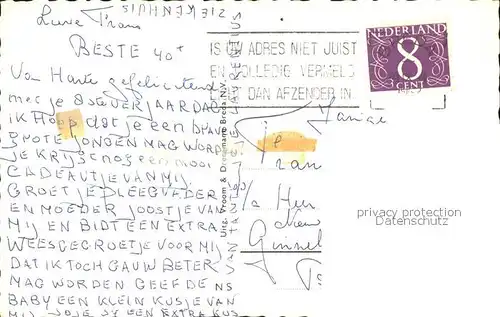 ZIEKENHUIS
Lieve Frans
BESTE 40+
Van Harte gefeliciteerd
met je VERJAARDAG
IK Hoop dat je een BRAVE
GROTE JONGEN MAG WORDEN
JE KRIJGT NOG EEN MOOI
CADEAUTJE VAN MIJ
GROET JE PLEEGVADER
EN MOEDER JOOSTJE VAN
MIJ EN BIDT EEN EXTRA
WEESGEGROETJE VOOR MIJ
DAT IK TOCH GAUW BETER
MAG WORDEN GEEF DE NS
BABY EEN KLEIN KUSJE VAN
MIJ EEN EXTRA KUS
VAN TANTE
Uitg. Vroom & Dreesmann Breda N.V.
IS UW ADRES NIET JUIST
EN VOLLEDIG VERMELD
DAN AFZENDER IN
NEDERLAND
8
CENT
Frans
p/a Heer
Ginnek
privacy protection
Datenschutz